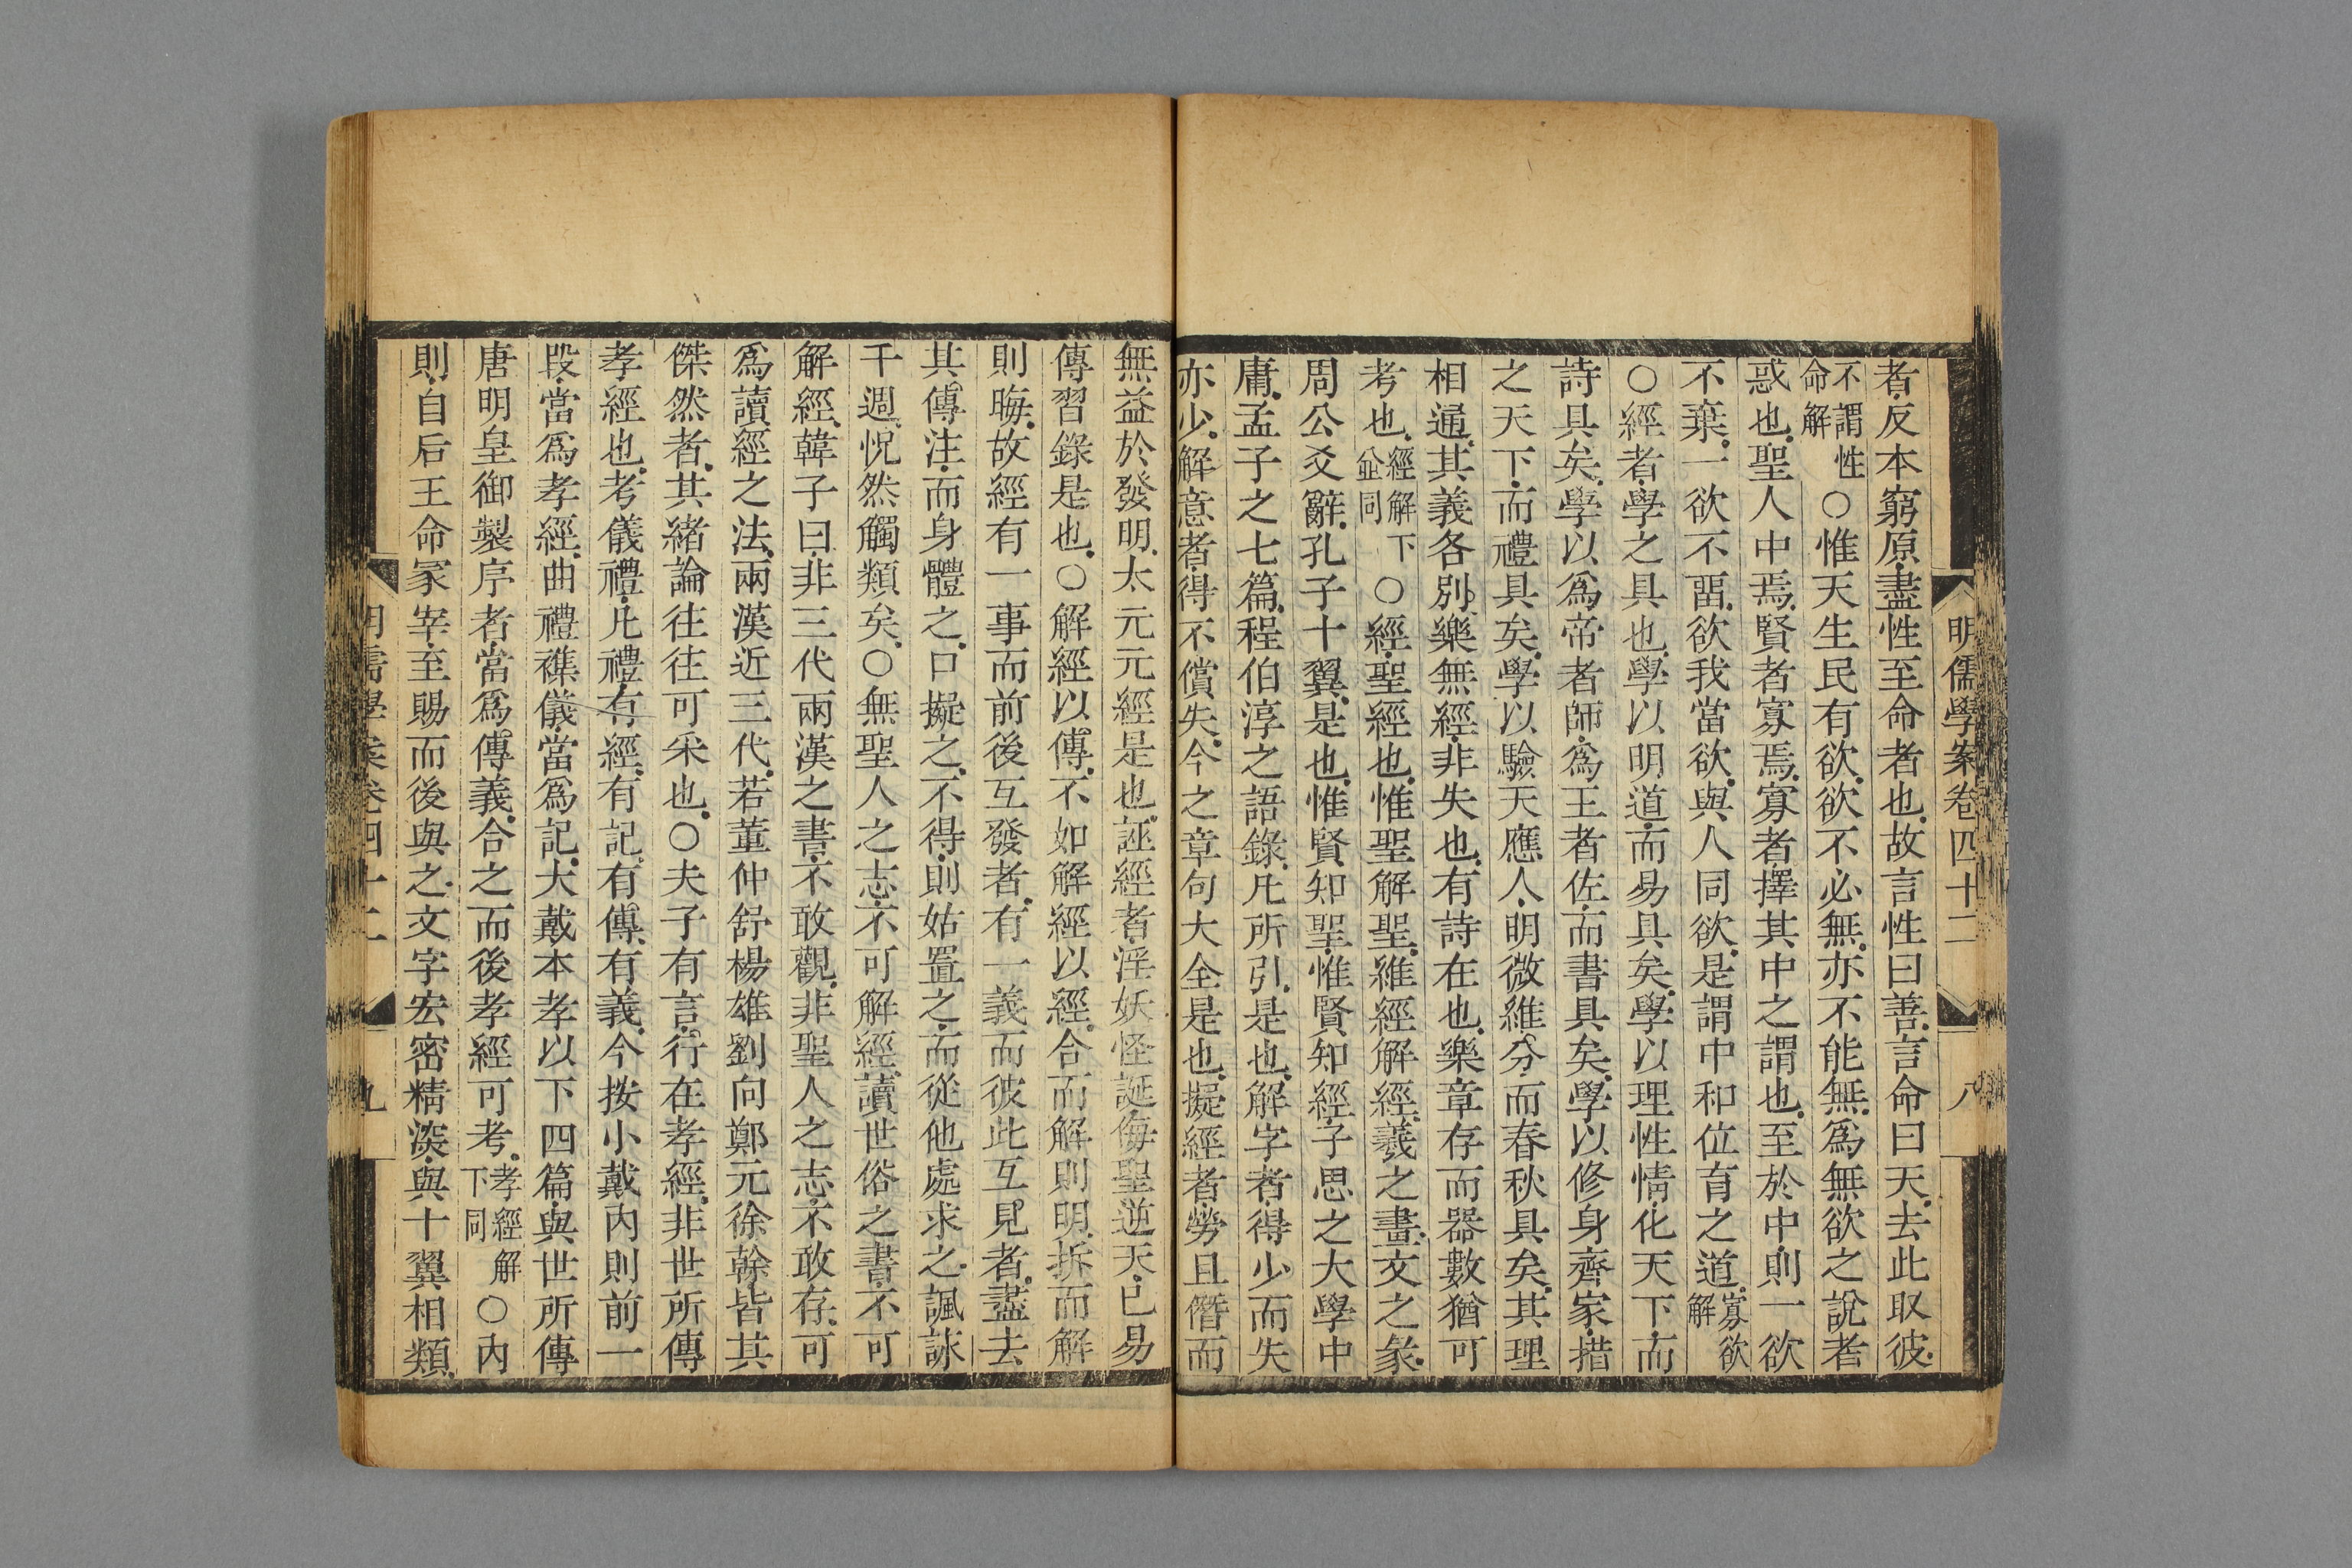 明儒學案卷四十二
八
者反本窮原盡性至命者也故言性曰善言命曰天去此取彼
不謂性命解○惟天生民有欲欲不必無亦不能無爲無欲之說者
惑也聖人中焉賢者寡焉寡者擇其中之謂也至於中則一欲
不棄一欲不畱欲我當欲與人同欲是謂中和位育之道寡欲解
○經者學之具也學以明道而易具矣學以理性情化天下而
詩具矣學以爲帝者師爲王者佐而書具矣學以修身齊家措
之天下而禮具矣學以驗天應人明微維分而春秋具矣其理
相通其義各別樂無經非失也有詩在也樂章存而器數猶可
考也經解下並同○經聖經也惟聖解聖維經解經羲之畫文之彖
周公爻辭孔子十翼是也惟賢知聖惟賢知經子思之大學中
庸孟子之七篇程伯淳之語錄凡所引是也解字者得少而失
亦少解意者得不償失今之章句大全是也擬經者勞且僭而
無益於發明太元元經是也誣經者淫妖怪誕侮聖逆天已易
傳習錄是也○解經以傳不如解經以經合而解則明拆而解
則晦故經有一事而前後互發者有一義而彼此互見者盡去
其傳注而身體之口擬之不得則姑置之而從他處求之諷詠
千週怳然觸類矣○無聖人之志不可解經讀世俗之書不可
解經韓子曰非三代兩漢之書不敢觀非聖人之志不敢存可
爲讀經之法兩漢近三代若董仲舒楊雄劉向鄭元徐幹皆其
傑然者其緒論往往可采也○夫子有言行在孝經非世所傳
孝經也考儀禮凡禮有經有記有傳有義今按小戴內則前一
段當爲孝經曲禮襍儀當爲記大戴本孝以下四篇與世所傳
唐明皇御製序者當爲傳義合之而後孝經可考孝經解下同○內
則自后王命冢宰至賜而後與之文字宏密精深與十翼相類
明儒學案卷四十二
九